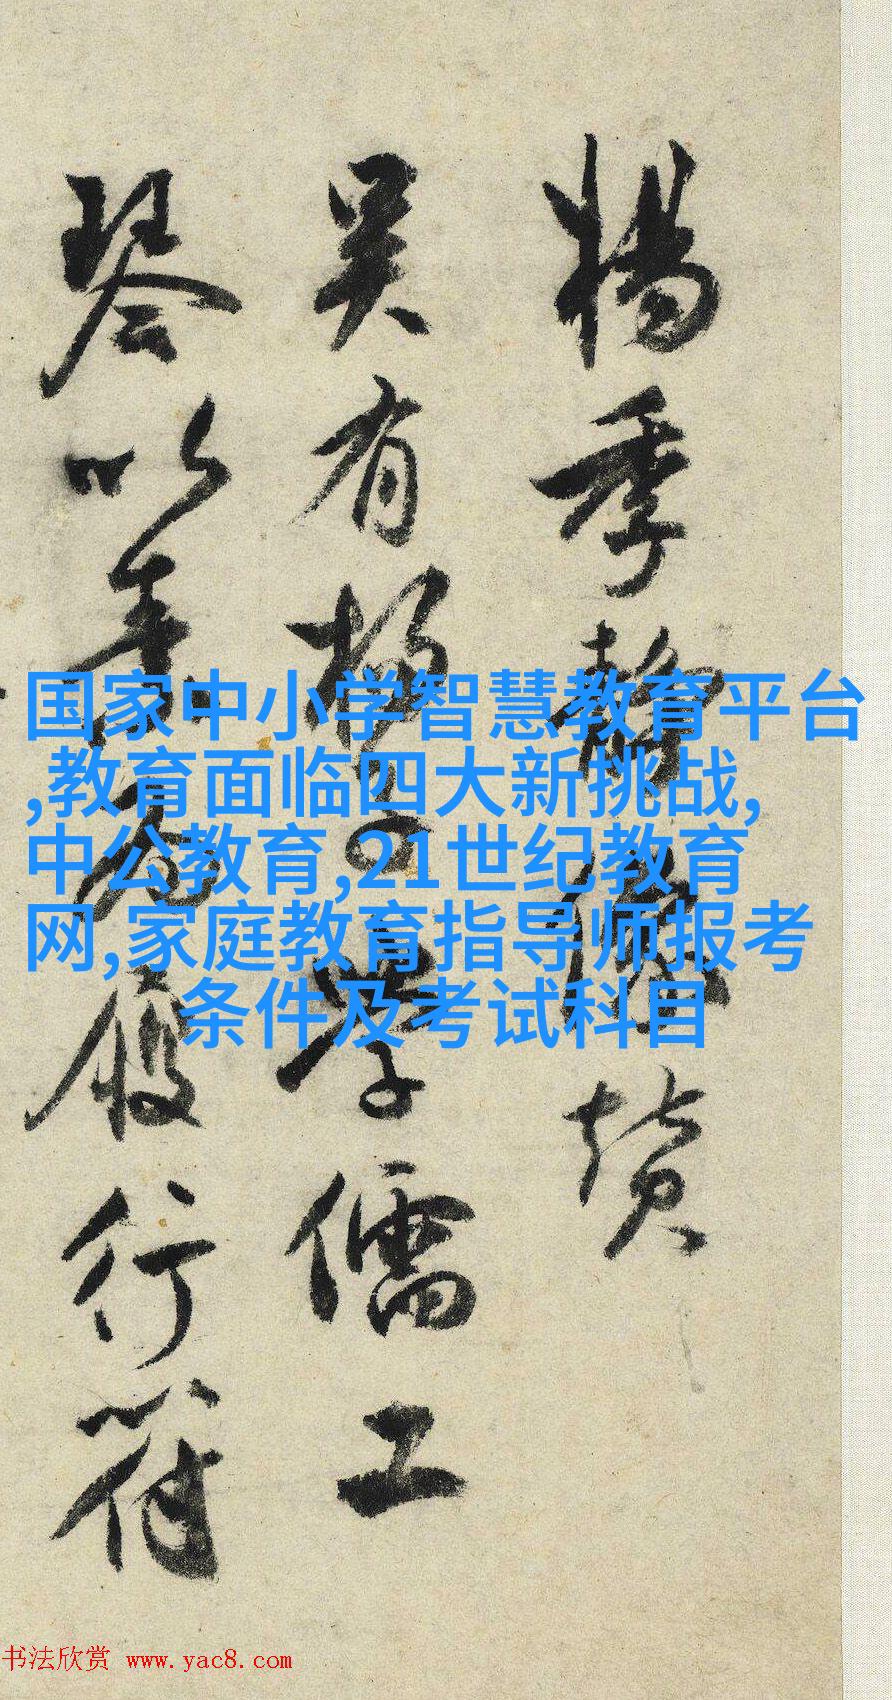 楊季静赞
吴有楊子学儒工
琴以行符
国家中小学智慧教育平台
,教育面临四大新挑战,
中公教育,21世纪教育
网,家庭教育指导师报考
条件及考试科目
书法欣赏 www.yac8.com